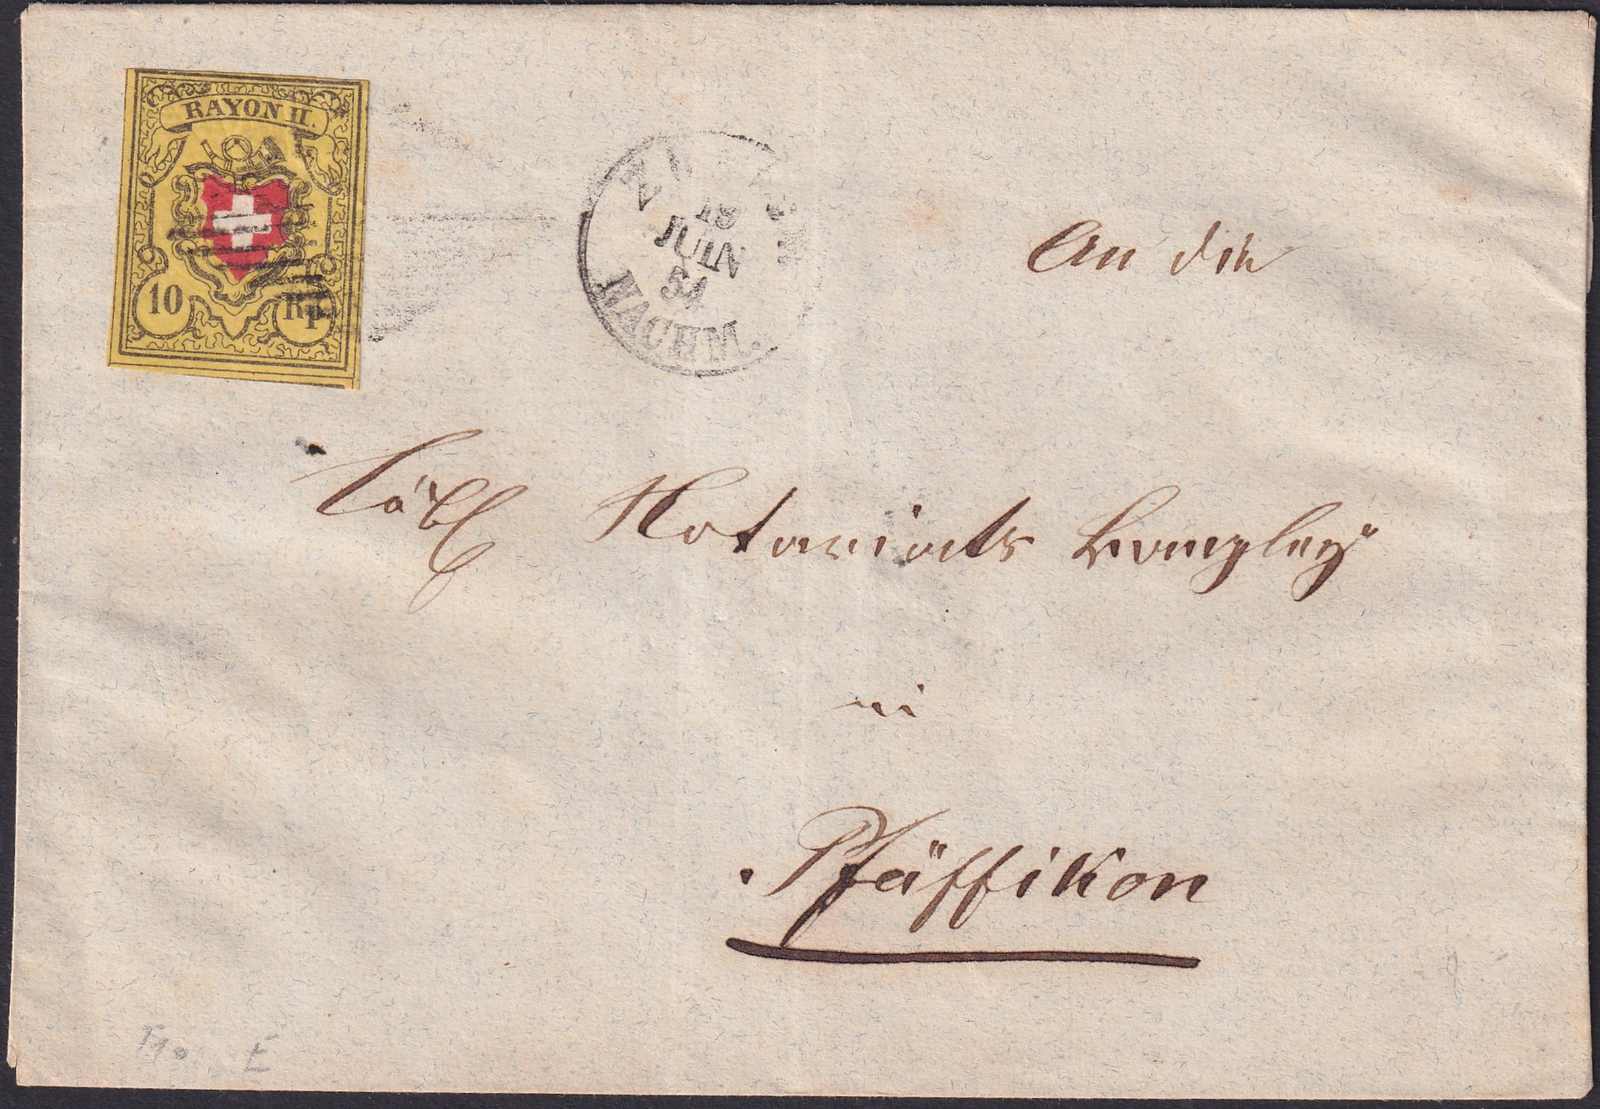 RAYON II.
10 Rp.
18
JUIN
54
NACHM.
An die
Löbl Notariats Canzley
in
Pfäffikon
E